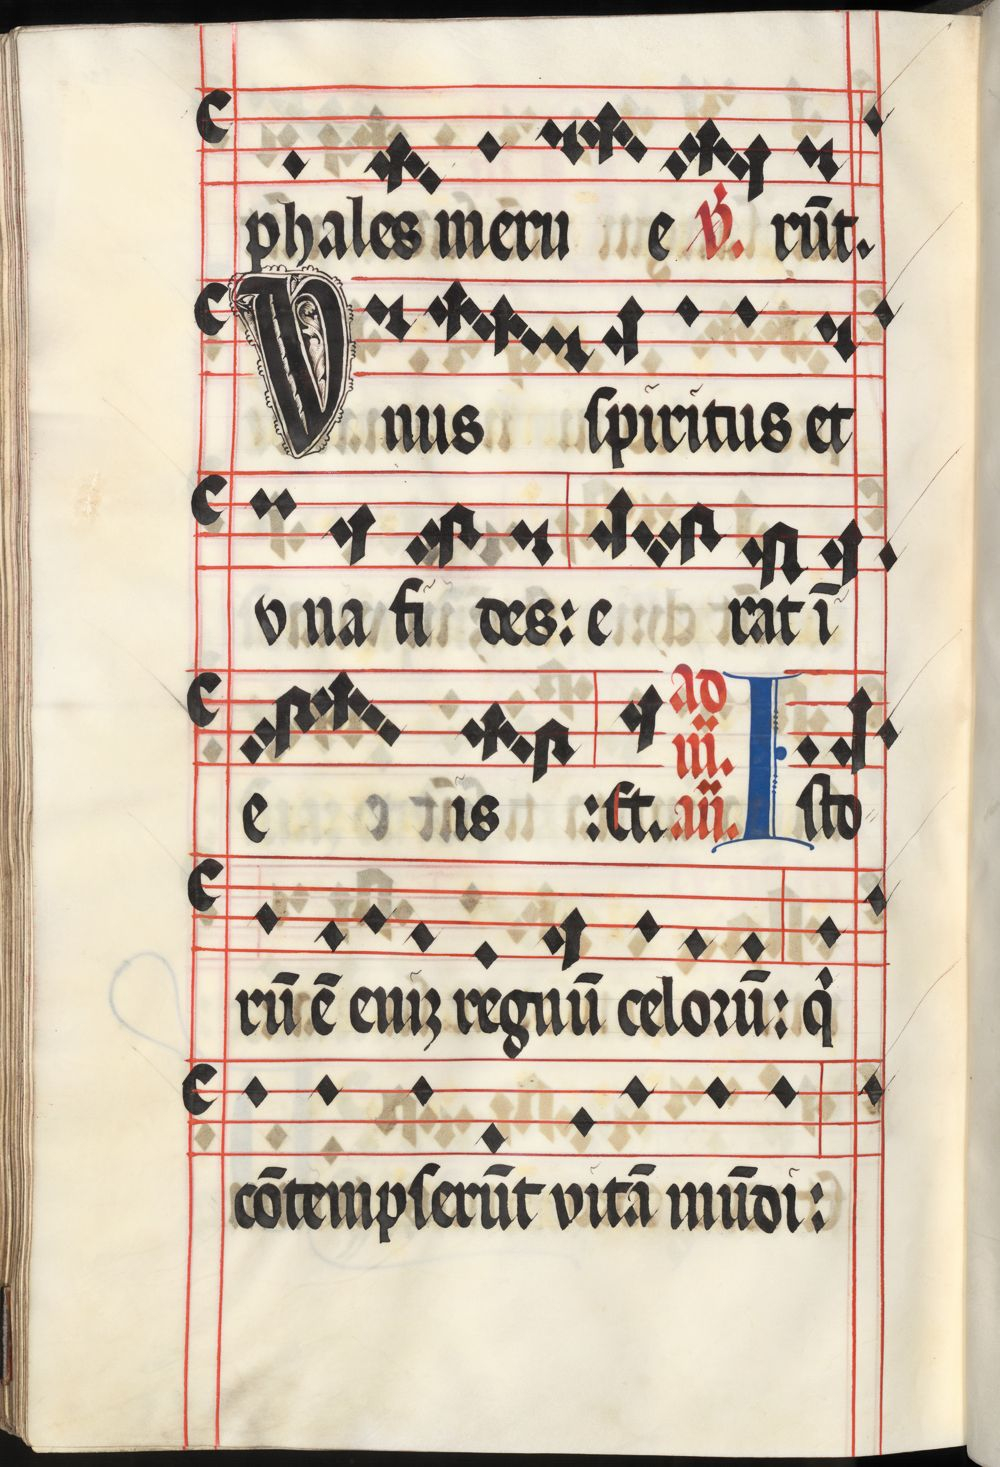 phales meru e v̓. rūt.
Vnus spiritus et
vna fi des: e rat ī
e is : Et. ad iii. añ. Isto
rū ē eniꝫ regnū celorū: q̓
cōtempserūt vitā mūdi: